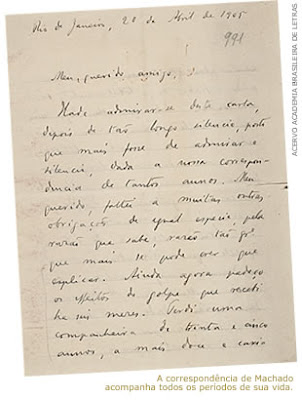 Rio de Janeiro, 20 de Abril de 1905
991
Meu querido amigo,
Hade admirar-se desta carta,
depois de tão longo silencio, posto
que mais fosse de admirar o
silencio, dada a nossa correspon-
dencia de tantos annos. Meu
querido, faltei a muitas outras
obrigações de egual especie, pela
razão que sabe, razão tão
que mais se pode crer que
explicar. Ainda agora padeço
os effeitos do golpe que recebi
ha seis mezes. Perdi uma
companheira de trinta e cinco
annos, a mais doce e cara
ACERVO ACADEMIA BRASILEIRA DE LETRAS
A correspondência de Machado
acompanha todos os períodos de sua vida.